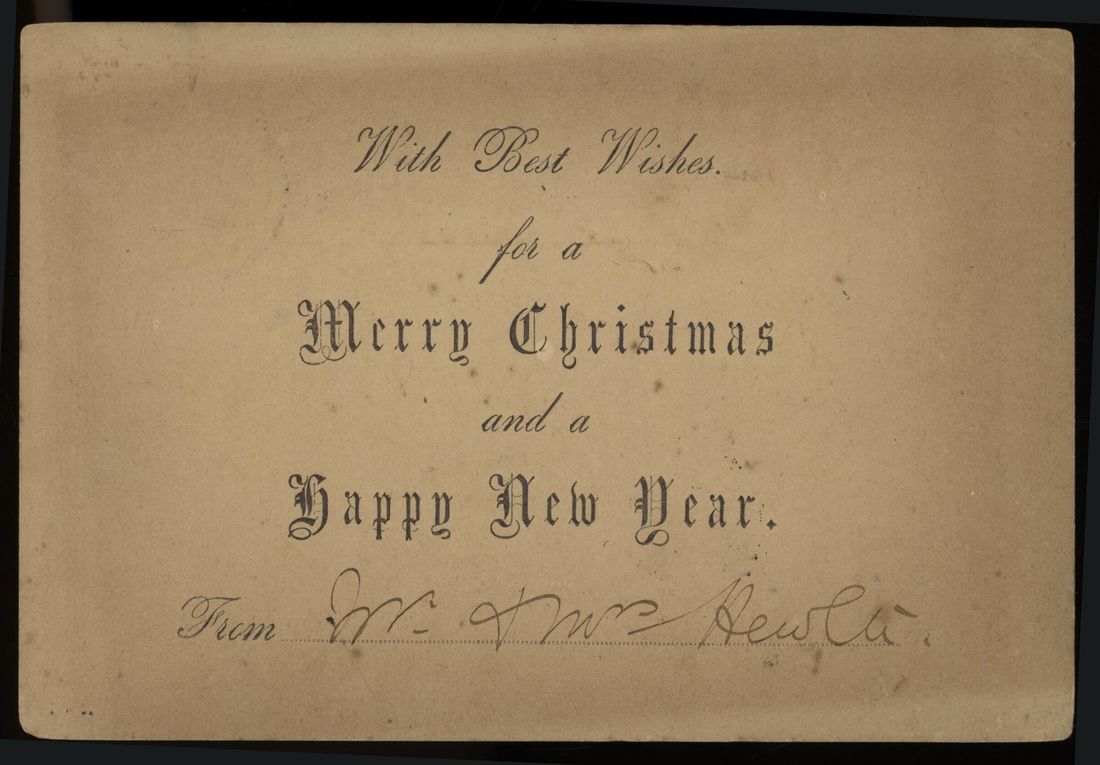 With Best Wishes.
for a
Merry Christmas
and a
Happy New Year.
From Mr. & Mrs Hewlett.